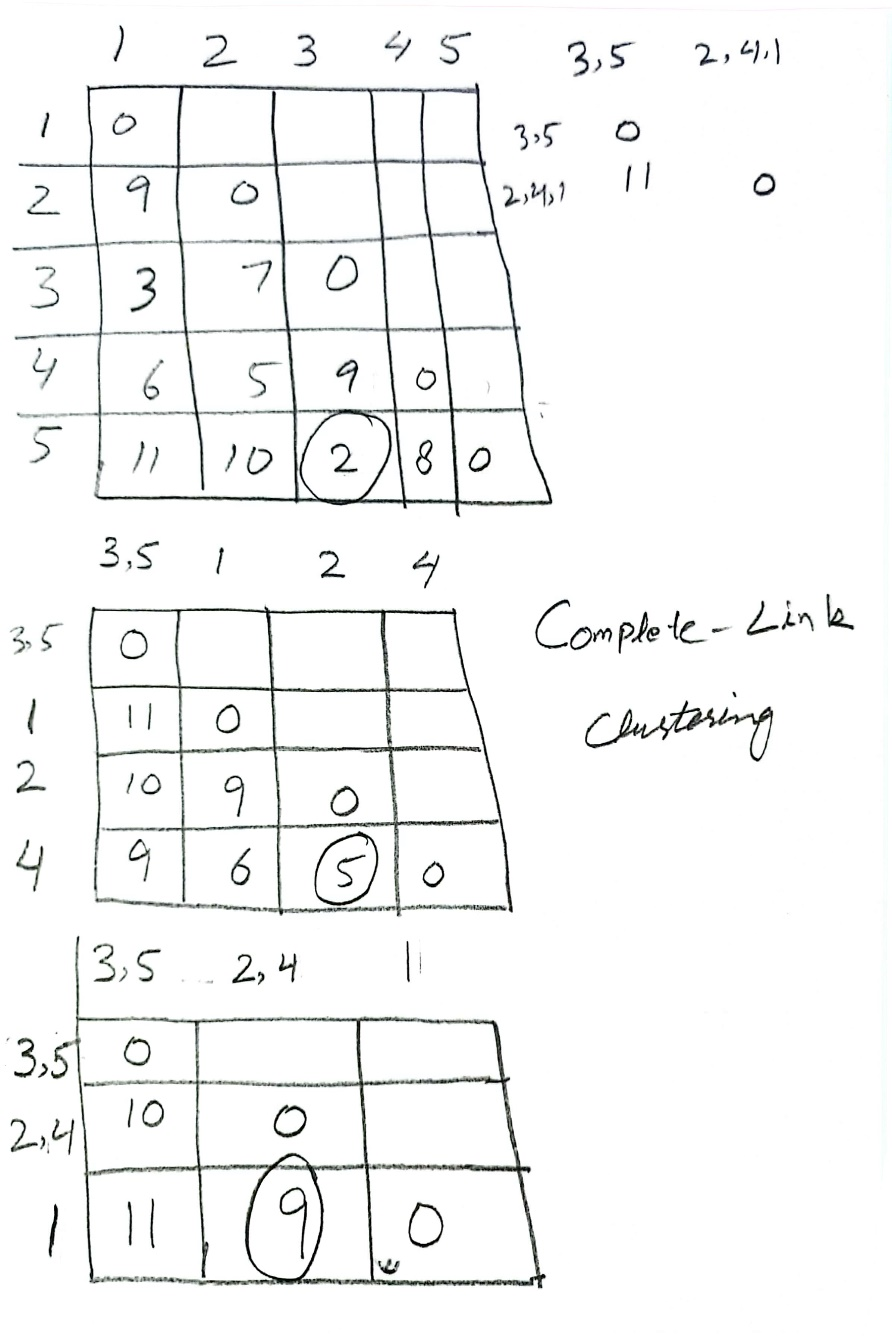 1 2 3 4 5
1 0
2 9 0
3 3 7 0
4 6 5 9 0
5 11 10 2 8 0
3,5 2,4,1
3,5 0
2,4,1 11 0
3,5 1 2 4
3,5 0
1 11 0
2 10 9 0
4 9 6 5 0
Complete-Link
Clustering
3,5 2,4 1
3,5 0
2,4 10 0
1 11 9 0